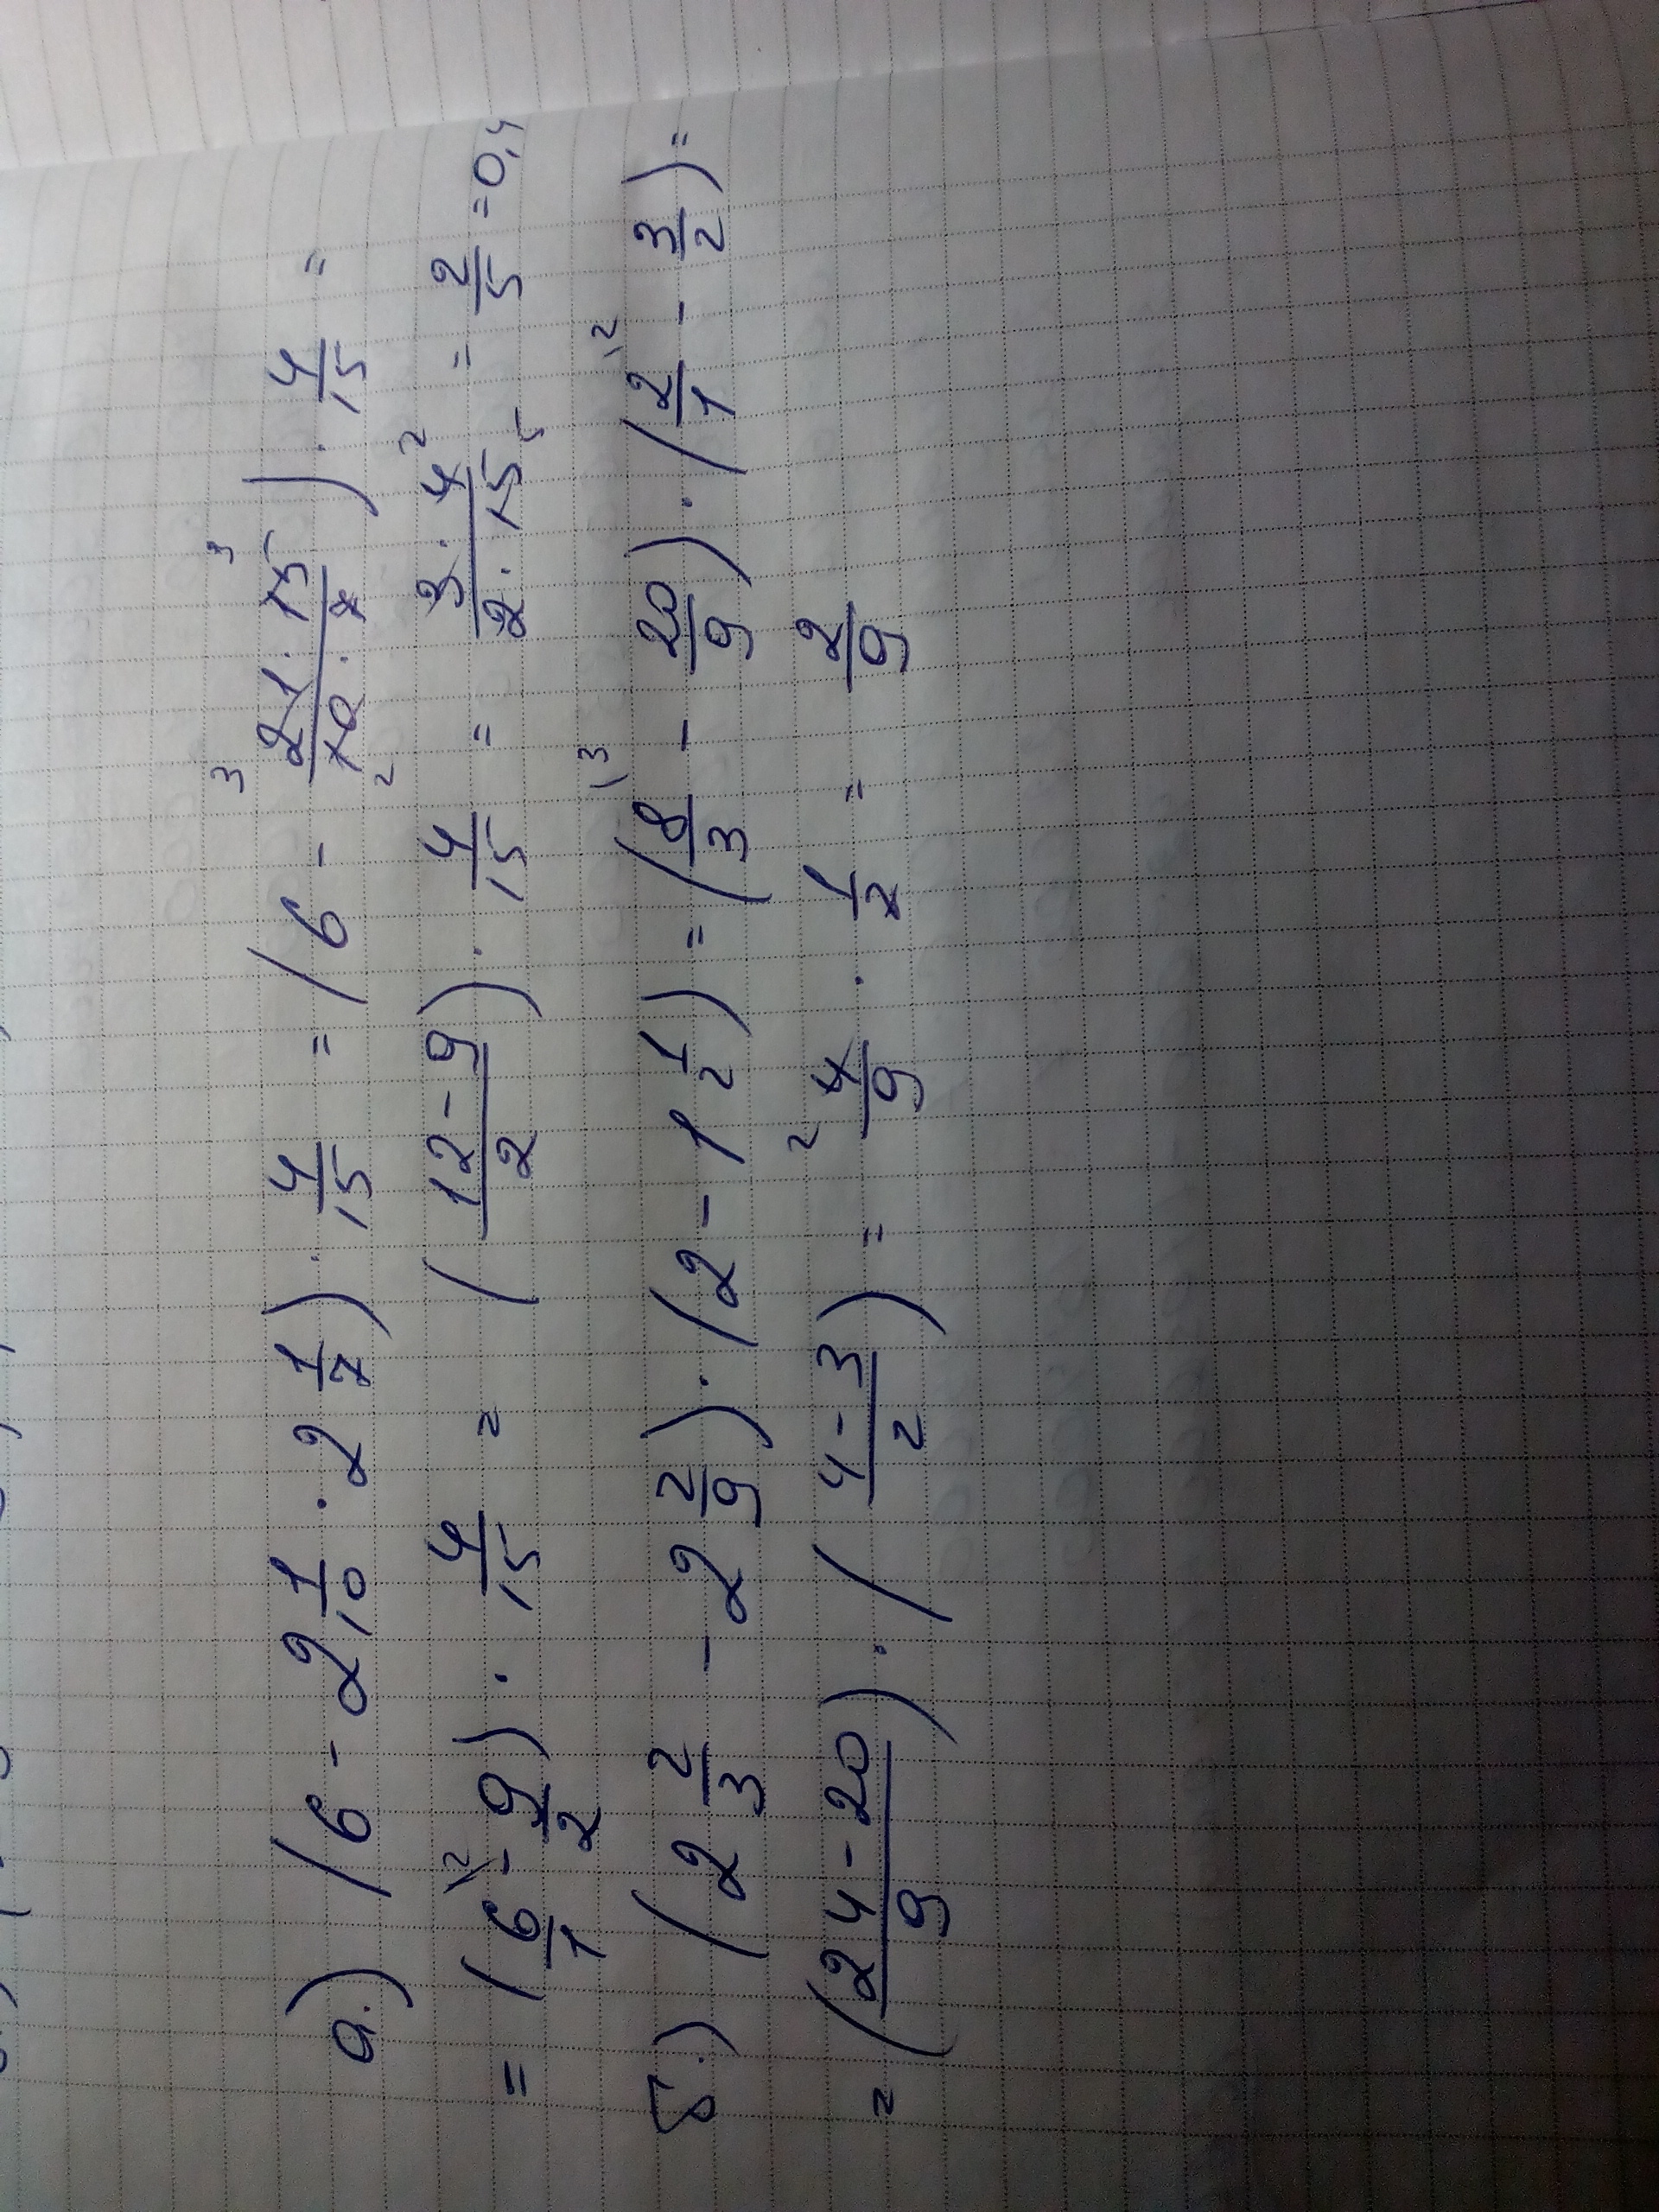 а.) (6 - 2 1/10 · 2 1/7) · 4/15 = (6 - 21·15/10·7) · 4/15 =
= (6/1 - 9/2) · 4/15 = (12-9/2) · 4/15 = 3·4/2·15 = 2/5 = 0,4
б.) (2 2/3 - 2 2/9) · (2 - 1 1/2) = (8/3 - 20/9) · (2/1 - 3/2) =
= (24-20/9) · (4-3/2) = 4/9 · 1/2 = 2/9